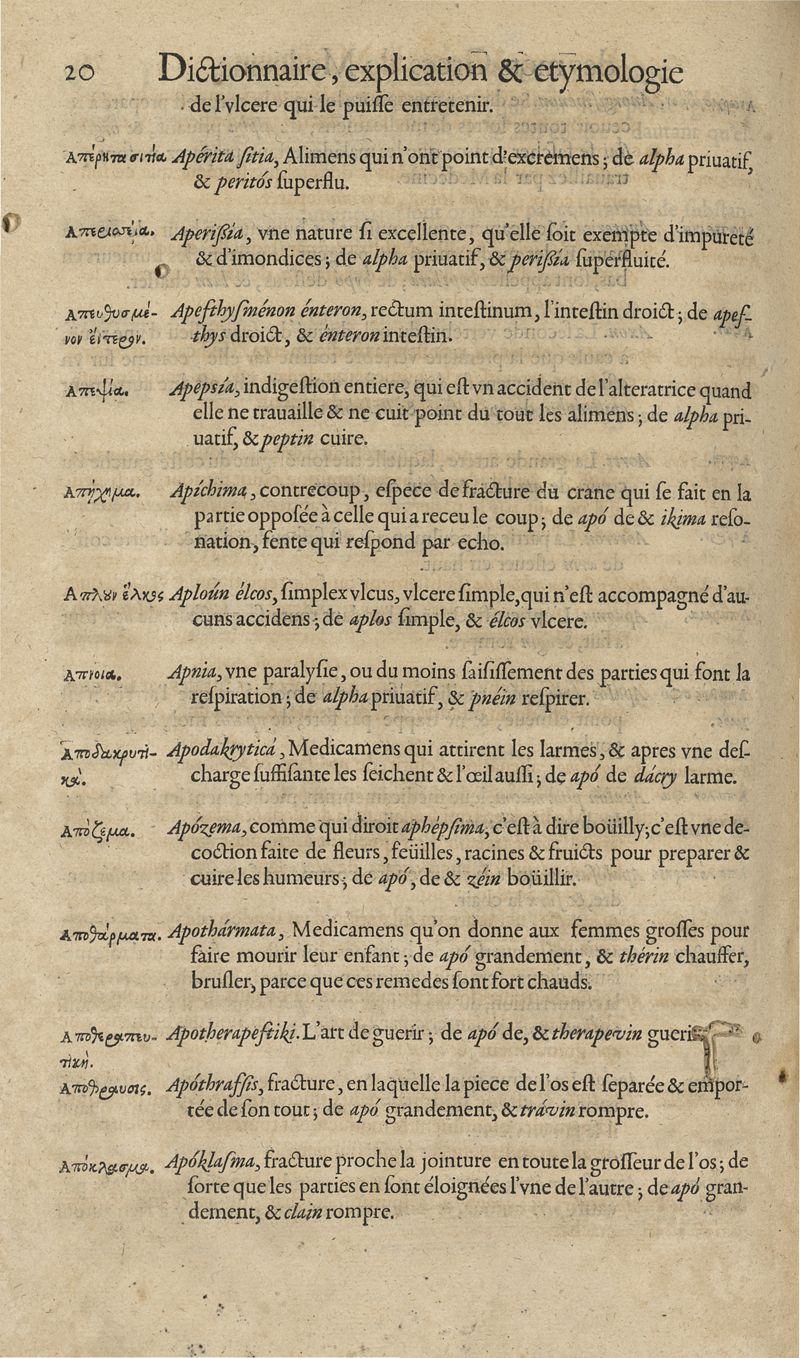 20 Dictionnaire, explication & etymologie
de l'vlcere qui le puiſſe entretenir.
Απέρητα σιτία Apérita ſitia, Alimens qui n'ont point d'excremens; de alpha priuatif,
& peritós ſuperflu.
Aperißía, vne nature ſi excellente, qu'elle ſoit exempte d'impureté
& d'imondices; de alpha priuatif, & perißía ſuperfluité.
Απευθυσμέ- Apeſthyſménon énteron, rectum inteſtinum, l'inteſtin droict; de apeſ-
νον ἔντερον. thys droict, & énteron inteſtin.
Απεψία. Apepsía, indigeſtion entiere, qui eſt vn accident de l'alteratrice quand
elle ne trauaille & ne cuit point du tout les alimens; de alpha pri-
uatif, & peptin cuire.
Απήχημα. Apíchima, contrecoup, eſpece de fracture du crane qui ſe fait en la
partie oppoſée à celle qui a receu le coup; de apó de & ikima reſo-
nation, fente qui reſpond par echo.
Απλȣν ἕλκος Aploún élcos, ſimplex vlcus, vlcere ſimple, qui n'eſt accompagné d'au-
cuns accidens; de aplos ſimple, & élcos vlcere.
Απνοια. Apnia, vne paralyſie, ou du moins ſaiſiſſement des parties qui font la
reſpiration; de alpha priuatif, & pnéin reſpirer.
Αποδακρυτι- Apodakryticá, Medicamens qui attirent les larmes, & apres vne deſ-
κὰ. charge ſuffiſante les ſeichent & l'œil auſſi; de apó de dácry larme.
Απόζεμα. Apózema, comme qui diroit aphépſima, c'eſt à dire boüilly; c'eſt vne de-
coction faite de fleurs, feüilles, racines & fruicts pour preparer &
cuire les humeurs; de apó, de & zéin boüillir.
Αποθάρματα. Apothármata, Medicamens qu'on donne aux femmes groſſes pour
faire mourir leur enfant; de apó grandement, & thérin chauffer,
bruſler, parce que ces remedes ſont fort chauds.
Αποθεραπευ- Apotherapeſtiki. L'art de guerir; de apó de, & therapevin gueri
τικὴ.
Αποθραυσις. Apóthraſſis, fracture, en laquelle la piece de l'os eſt ſeparée & empor-
tée de ſon tout; de apó grandement, & trávin rompre.
Απόκλασμα. Apóklaſma, fracture proche la jointure en toute la groſſeur de l'os; de
ſorte que les parties en ſont éloignées l'vne de l'autre; de apó gran-
dement, & clain rompre.